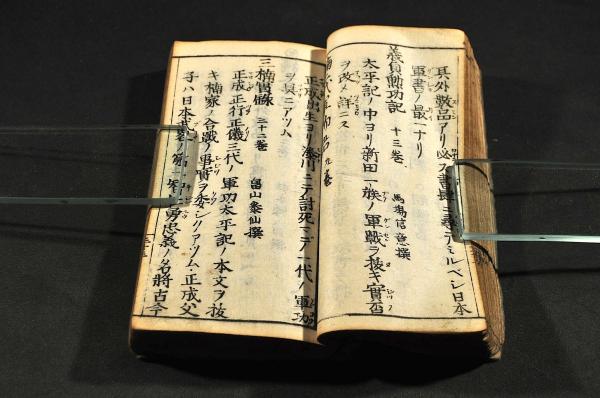 其外數品アリ必ス書肆ニ尋テミルベシ日本
軍書ノ最一ナリ
義貞勲功記 十三巻 馬場信意撰
太平記ノ中ヨリ新田一族ノ軍戰ヲ抜キ實否
ヲ改メ詳ニス
正成出生ヨリ湊川ニテ討死マデ一代ノ軍功
ヲ具ニアツム
三楠實録 二十二巻 畠山泰仙撰
正成正行正儀三代ノ軍功太平記ノ本文ヲ抜
キ楠家ノ合戰ノ事實ヲ委シクアツム正成父
子ハ日本 第一 勇忠義ノ名將古今